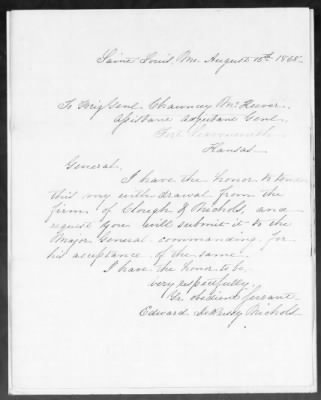 Saint Louis, Mo. August 15th 1868.
To Brig Genl. Chauncey McKeever.
Assistant Adjutant Genl.
Fort Leavenworth
Kansas
General.
I have the honor to tender
this my withdrawal from the
firm of Clough & Nichols, and
request you will submit it to the
Major General commanding for
his acceptance of the same.
I have the honor to be
very respectfully
Yr obedient servant
Edward Nichols